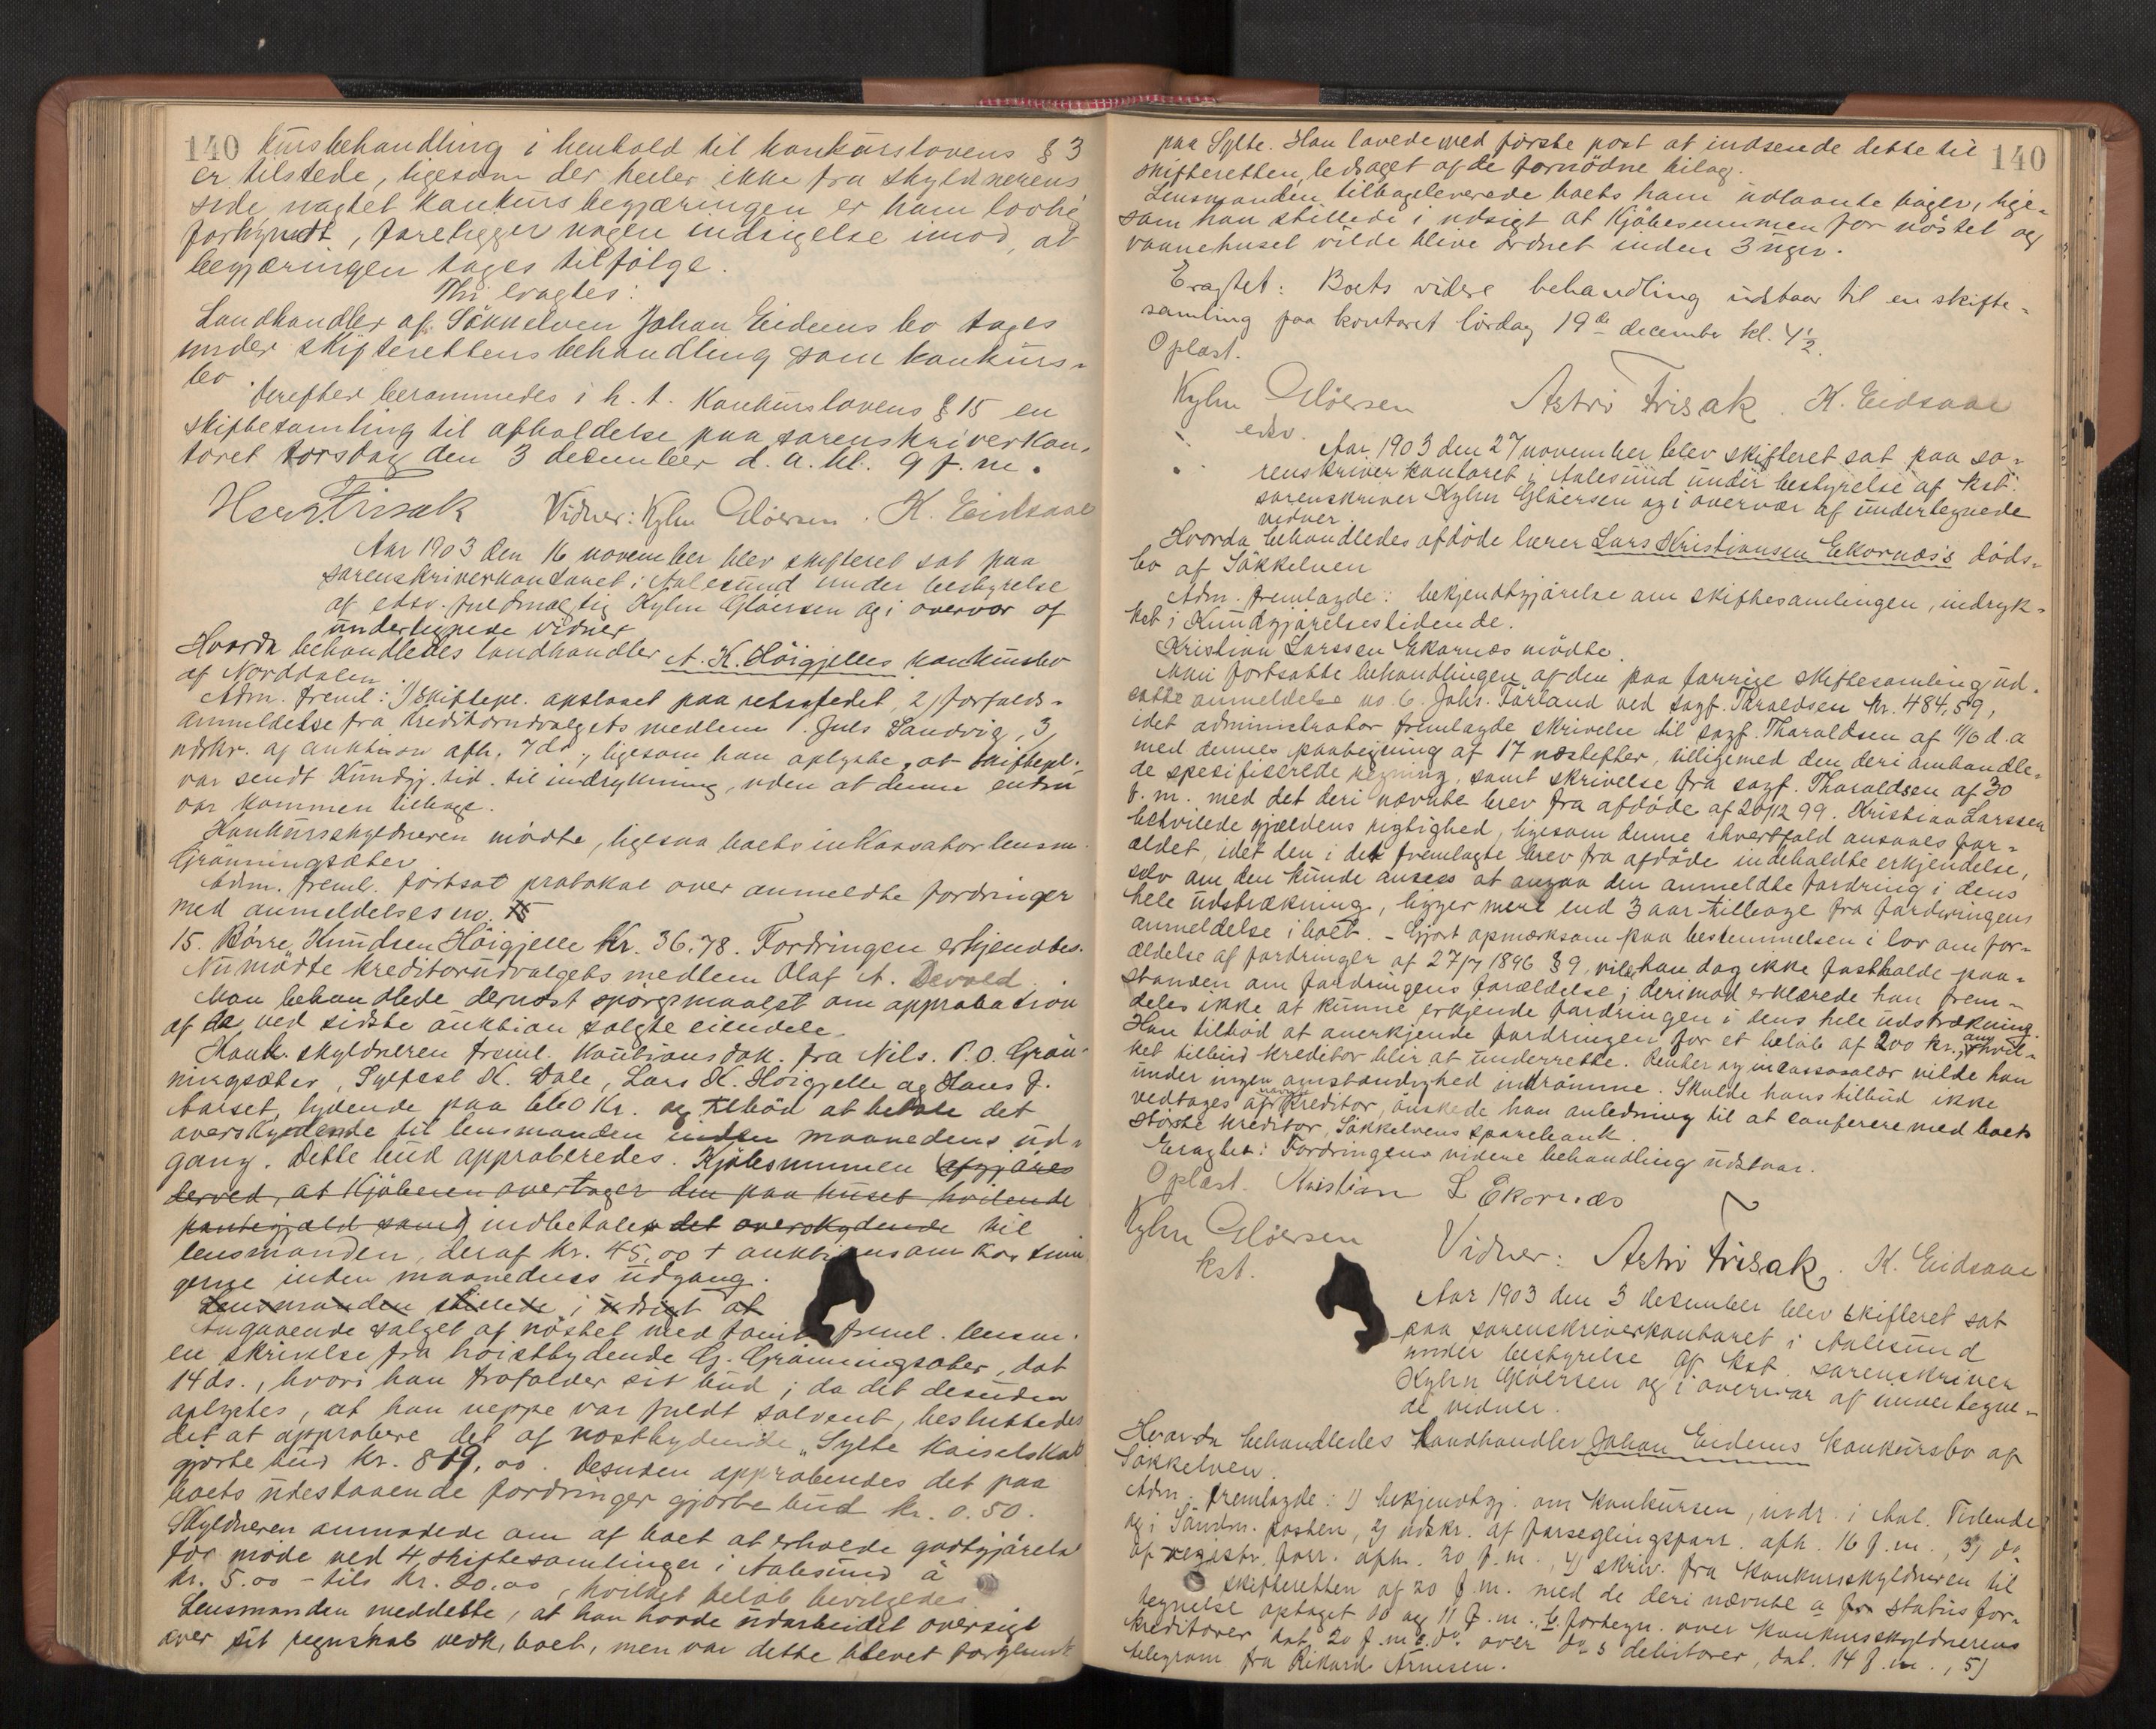 140 kursbehandling i henhold til konkurslovens § 3
er tilstede, ligesom der heller ikke fra skyldnerens
side uagtet konkursbegjæringen er ham lovlig
forkyndt, foreligger nogen indsigelse imod, at
begjæringen tages tilfølge.
Thi eragtes:
Landhandler af Søkkelven Johan Eidems bo tages
under skifterettens behandling som konkurs-
bo.
Derefter berammedes i h. t. konkurslovens § 15 en
skiftesamling til afholdelse paa sorenskriverkon-
toret torsdag den 3 december d. a. kl. 9 f. m.
Frisak Vidner: Kyhn Gløersen. K. Eidsaae
Aar 1903 den 16 november blev skifteret sat paa
sorenskriverkontoret i Aalesund under bestyrelse
af edsv. fuldmægtig Kyhn Gløersen og i overvær af
undertegnede vidner
Hvorda behandledes landhandler A. K. Høigjelles konkursbo
af Norddalen.
Adm. freml: 1) skiftepl. opslaaet paa retsstedet, 2) forfalds-
anmeldelse fra kreditorudvalgets medlem P. Juls Sandvig, 3)
udskr. af auktion afh. 7 ds., ligesom han oplyste, at skiftepl.
var sendt Kundgj. tid. til indrykning, uden at denne endnu
var kommen tilbage.
Konkursskyldneren mødte, ligesaa boets inkassator lensm.
Grønningsæter.
Adm. freml. fortsat protokol over anmeldte fordringer
med anmeldelses no. 15
15. Børre Knudsen Høigjelle kr. 36.78. Fordringen erkjendtes.
Nu mødte kreditorudvalgets medlem Olaf A. Devold.
Man behandlede dernæst spørgsmaalet om approbation
af de ved sidste auktion solgte eiendele.
Konk. skyldneren freml. kautionsdok. fra Nils. P. O. Grøn-
ningsæter, Sylfest K. Dale, Lars K. Høigjelle og Hans J.
Aarset, lydende paa 660 Kr. og tilbød at betale det
overskydende til lensmanden inden maanedens ud-
gang. Dette bud approberedes. Kjøbesummen afgjøres
derved, at kjøberen overtager den paa huset hvilende
pantegjæld samt indbetaler det overskydende til
lensmanden, deraf kr. 45.00 + auktionsomkostnin
gerne inden maanedens udgang.
Lensmanden stillede i udsigt at
Angaaende salget af nøstet med tomt freml. lensm.
en skrivelse fra høistbydende G. Grønningsæter, dat
14 ds., hvori han frafalder sit bud; da det desuden
oplystes, at han neppe var fuldt solvent, besluttedes
det at approbere det af næstbydende "Sylte Kaiselskab
gjorte bud kr. 819.00. Desuden approberedes det paa
boets udestaaende fordringer gjorte bud kr. 0.50.
Skyldneren anmodede om af boet at erholde godtgjørelse
for møde ved 4 skiftesamlinger i Aalesund à
kr. 5.00 – tils kr. 20.00, hvilket beløb bevilgedes.
Lensmanden meddelte, at han havde udarbeidet oversigt
over sit regnskab vedk. boet, men var dette blevet forglemt
140
paa Sylte. Han lovede med første post at indsende dette til
skifteretten, ledsaget af de fornødne bilag.
Lensmanden tilbageleverede boets ham udlaante bøger, lige-
som han stillede i udsigt at kjøbesummen for nøstet og
vaanehuset vilde blive ordnet inden 3 uger.
Eragtet: Boets videre behandling udstaar til en skifte-
samling paa kontoret lørdag 19de december kl. 4½.
Oplæst.
Kyhn Gløersen Astri Frisak. K. Eidsaae
edsv.
Aar 1903 den 27 november blev skifteret sat paa so-
renskriverkontoret i Aalesund under bestyrelse af kst.
sorenskriver Kyhn Gløersen og i overvær af undertegnede
vidner.
Hvorda behandledes afdøde lærer Lars Kristiansen Ekornæs's døds-
bo af Søkkelven
Adm. fremlagde: bekjendtgjørelse om skiftesamlingen, indryk-
ket i Kundgjørelsestidende.
Kristian Larssen Ekornæs mødte.
Man fortsatte behandlingen af den paa forrige skiftesamling ud-
satte anmeldelse no. 6. Johs. Førland ved sagf. Tharaldsen kr. 484,59,
idet administrator fremlagde skrivelse til sagf. Tharaldsen af 11/6 d. a
med dennes paategning af 17 næstefter, tilligemed den deri omhandle-
de spesifiserede regning, samt skrivelse fra sagf. Tharaldsen af 30
f. m. med det deri nævnte brev fra afdøde af 20/12 99. Kristian Larssen
betvilede gjældens rigtighed, ligesom denne ihvertfald ansaaes for-
ældet, idet den i det fremlagte brev fra afdøde indeholdte erkjendelse,
selv om den kunde ansees at angaa den anmeldte fordring i dens
hele udstrækning, ligger mere end 3 aar tilbage fra fordringens
anmeldelse i boet. – Gjort opmærksom paa bestemmelsen i lov om for-
ældelse af fordringer af 27/7 1896 § 9, vilde han dog ikke fastholde paa-
standen om fordringens forældelse; derimod erklærede han frem-
deles ikke at kunne erkjende fordringen i dens hele udstrækning.
Han tilbød at anerkjende fordringen for et beløb af 200 kr., om hvil-
ket tilbud kreditor blir at underrette. Renter og incassosalær vilde han
under ingen omstændighed indrømme. Skulde hans tilbud ikke
vedtages af kreditor, ønskede han anledning til at conferere med boets
største kreditor, Søkkelvens sparebank.
Eragtet: Fordringens videre behandling udstaar.
Oplæst. Kristian L Ekornæs
Kyhn Gløersen Vidner: Astri Frisak. K. Eidsaae
kst.
Aar 1903 den 3 desember blev skifteret sat
paa sorenskriverkontoret i Aalesund
under bestyrelse af kst. sorenskriver
Kyhn Gløersen og i overvær af undertegne-
de vidner.
Hvorda behandledes landhandler Johan Eidems konkursbo af
Søkkelven.
Adm. fremlagde: 1) bekjendtgj. om konkursen, indr. i Aal. Tidende
og i Søndm. posten, 2) udskr. af forseglingsforr. afh. 16 f. m., 3) do
af registr. forr. afh. 20 f. m., 4) skriv. fra konkursskyldneren til
skifteretten af 20 f. m. med de deri nævnte a status for-
tegnelse optaget 10 og 11 f. m. b fortegn. over konkursskyldnerens
kreditorer dat. 20 f. m. c. do over do s debitorer, dat. 14 f. m., 5)
telegram fra Rikard Arnesen.